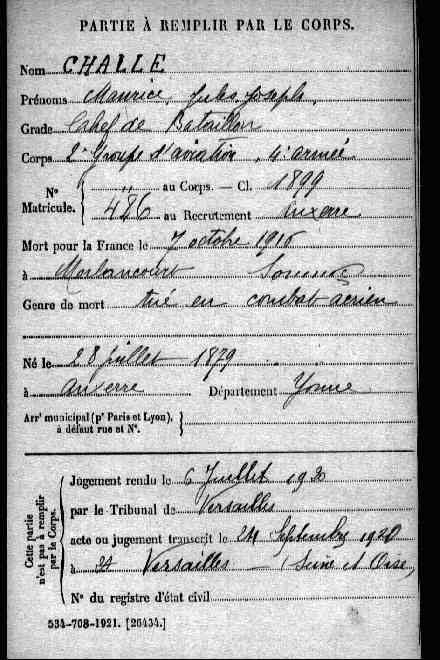 PARTIE À REMPLIR PAR LE CORPS.
Nom CHALLE
Prénoms Maurice, Jules Joseph,
Grade Chef de Bataillon
Corps 2e Groupe d'aviation, 4e armée
N° Matricule. { " au Corps. — Cl. 1899
426 au Recrutement Auxerre
Mort pour la France le 7 octobre 1916
à Morlancourt Somme
Genre de mort tué en combat aérien
Né le 28 juillet 1879
à Auxerre Département Yonne
Arrt municipal (pr Paris et Lyon), à défaut rue et N°. }
Cette partie n'est pas à remplir par le Corps.
Jugement rendu le 6 Juillet 1920
par le Tribunal de Versailles
acte ou jugement transcrit le 24 Septembre 1920
à Versailles — (Seine et Oise)
N° du registre d'état civil
534-708-1921. [26434.]